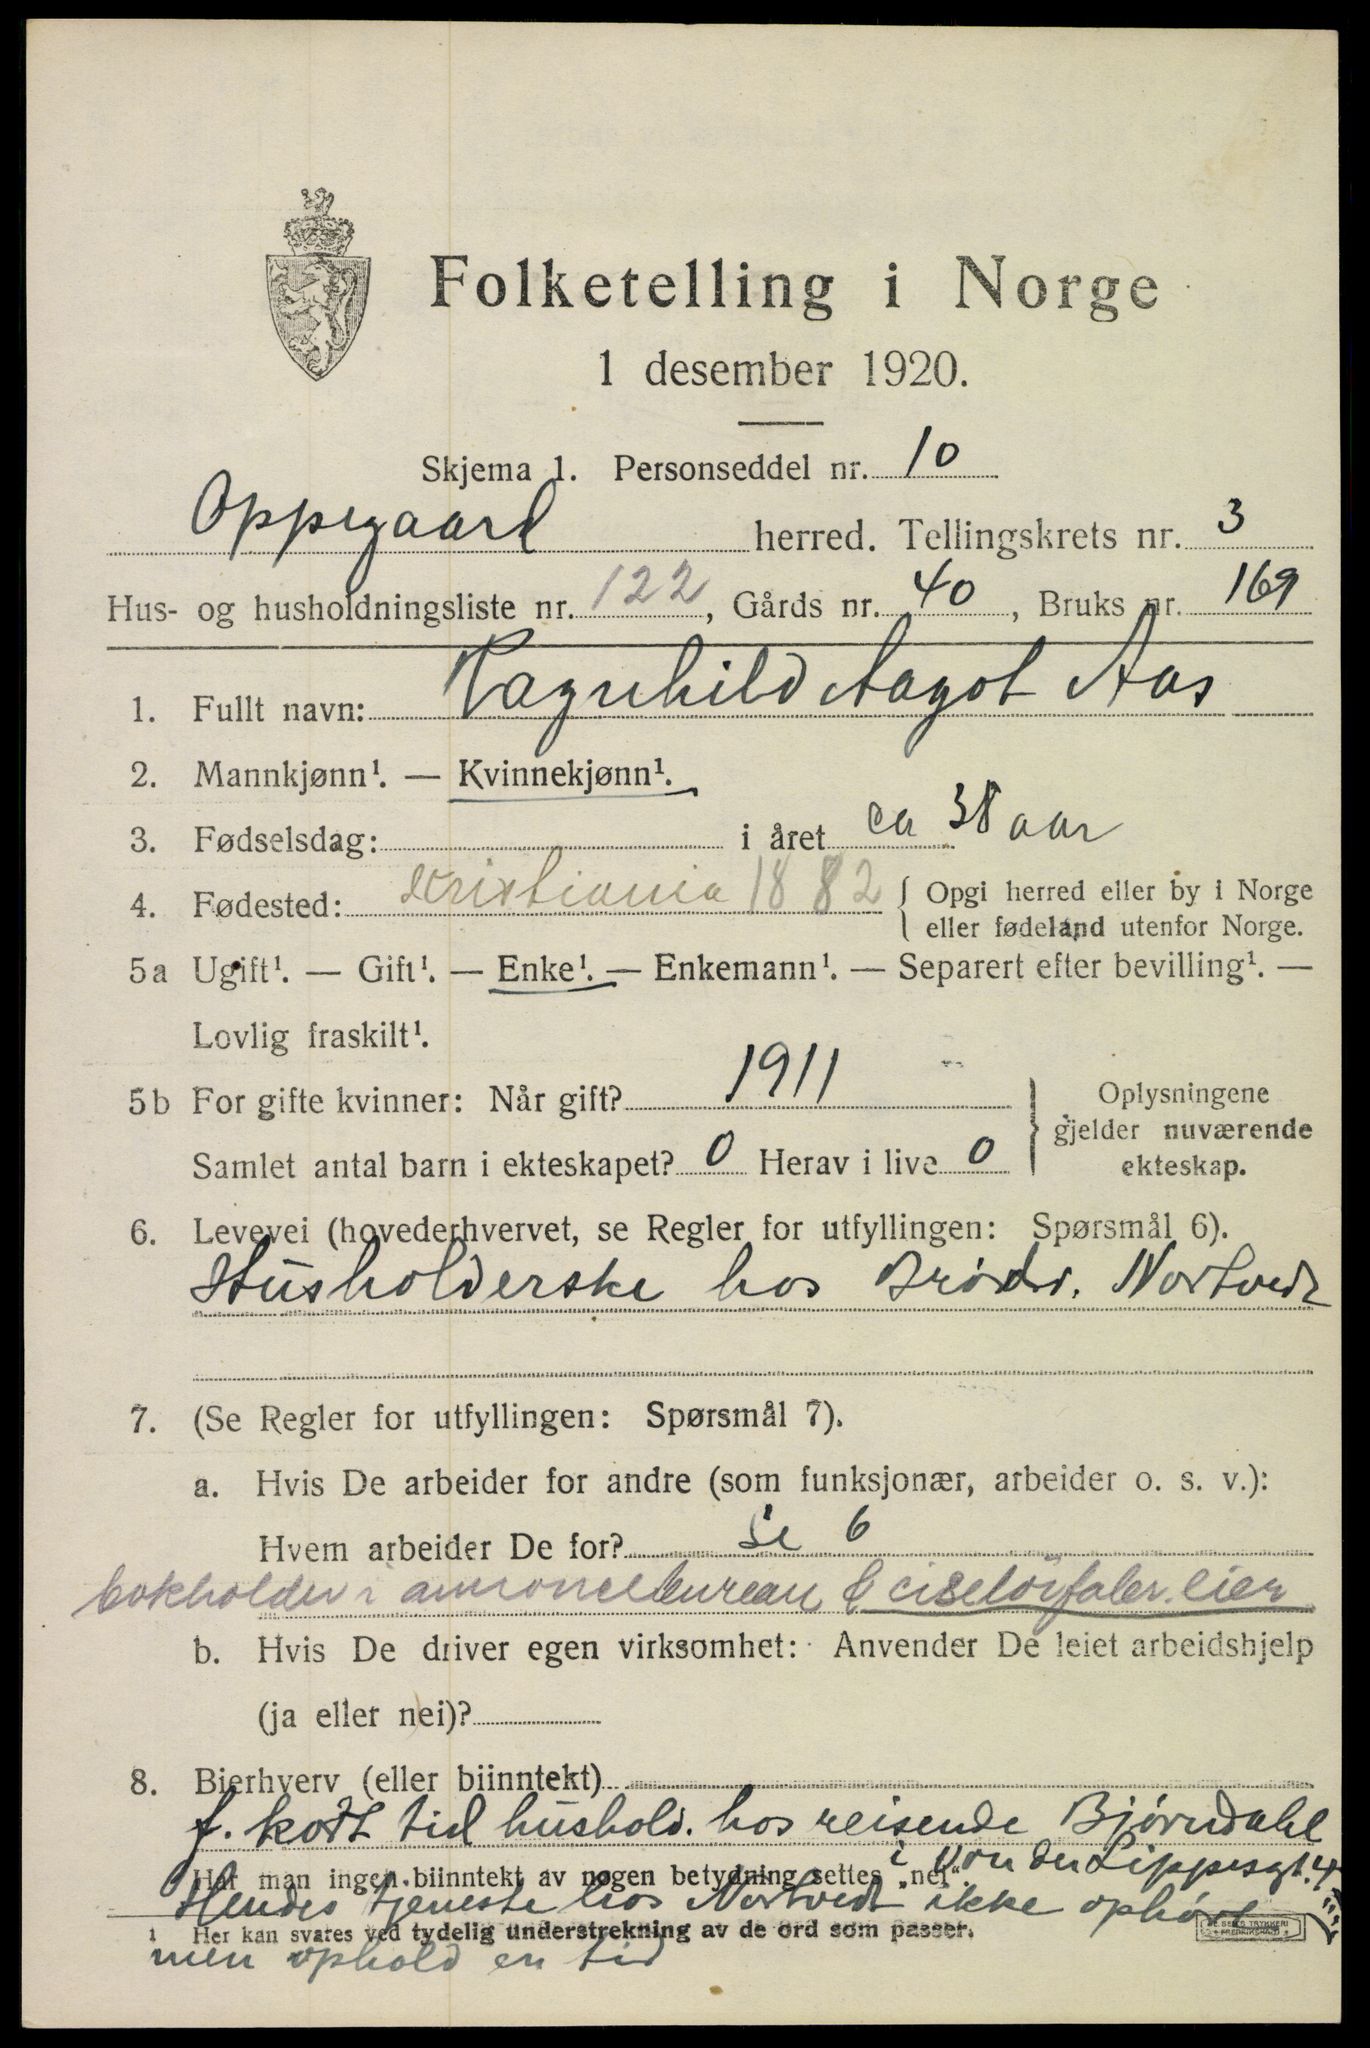 Folketelling i Norge
1 desember 1920.
Skjema 1. Personseddel nr. 10
Oppegaard herred. Tellingskrets nr. 3
Hus- og husholdningsliste nr. 122, Gårds nr. 40, Bruks nr. 169
1. Fullt navn: Ragnhild Aagot Aas
2. Mannkjønn¹. — Kvinnekjønn¹.
3. Fødselsdag: i året ca 38 aar
4. Fødested: Kristiania 1882 { Opgi herred eller by i Norge
eller fødeland utenfor Norge.
5a Ugift¹. — Gift¹. — Enke¹. — Enkemann¹. — Separert efter bevilling¹. —
Lovlig fraskilt¹.
5b For gifte kvinner: Når gift? 1911
Samlet antal barn i ekteskapet? 0 Herav i live 0
Oplysningene
gjelder nuværende
ekteskap.
6. Levevei (hovederhvervet, se Regler for utfyllingen: Spørsmål 6).
Husholderske hos Brødr. Nortvedt
7. (Se Regler for utfyllingen: Spørsmål 7).
a. Hvis De arbeider for andre (som funksjonær, arbeider o. s. v.):
Hvem arbeider De for? Se 6
bokholder i annoncebureau & ciselørfaler. eier
b. Hvis De driver egen virksomhet: Anvender De leiet arbeidshjelp
(ja eller nei)?
8. Bierhverv (eller biinntekt)
f. kort tid hushold. hos reisende Bjørndahl
i Von der Lippesgt. 4
Har man ingen biinntekt av nogen betydning settes „nei“.
Hendes tjeneste hos Nortvedt ikke ophørt
¹ Her kan svares ved tydelig understrekning av de ord som passer.
men ophold en tid